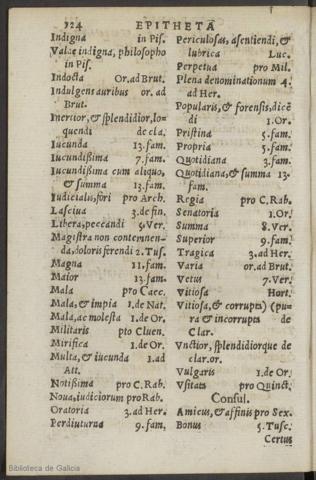 324 EPITHETA
Indigna in Pis.
Valde indigna, philosopho
in Pis.
Indocta Or.ad Brut.
Indulgens auribus or. ad
Brut.
Inertior, & splendidior, lo-
quendi de cla.
Iucunda 13.fam.
Iucundissima 7.fam.
Iucundissima cum aliquo,
& summa 13.fam.
Iudicialis, fori pro Arch.
Lasciua 3.de fin.
Libera, peccandi 5.Ver.
Magistra non contemnen-
da, doloris ferendi 2.Tus.
Magna 11.fam.
Maior 13.fam.
Mala pro Caec.
Mala, & impia 1.de Nat.
Mala, ac molesta 1.de Or.
Militaris pto Cluen.
Mirifica 1.de Or.
Multa, & iucunda 1.ad
Att.
Notissima pro C. Rab.
Noua, iudiciorum pro Rab.
Oratoria 3.ad Her.
Perdiuturna 9.fam.
Periculosas, asentiendi, &
lubrica Luc.
Perpetua pro Mil.
Plena denominationum 4.
ad Her.
Popularis, & forensis, dicē
di 1.Or.
Pristina 5.fam.
Propria 5.fam.
Quotidiana 3.fam.
Quotidiana, & summa 13.
fam.
Regia pro C. Rab.
Senatoria 1.Or.
Summa 8.Ver.
Superior 9.fam.
Tragica 3.ad Her.
Varia or.ad Brut.
Vetus 7.Ver.
Vitiosa Hort.
Vitiosa, & corrupta) (pu-
ra & incorrupta de
Clar.
Vnctior, splendidiorque de
clar.or.
Vulgaris 1.de Or.
Vsitata pro Quinct.
Consul.
Amicus, & affinis pro Sex.
Bonus 5.Tusc.
Certus
Biblioteca de Galicia